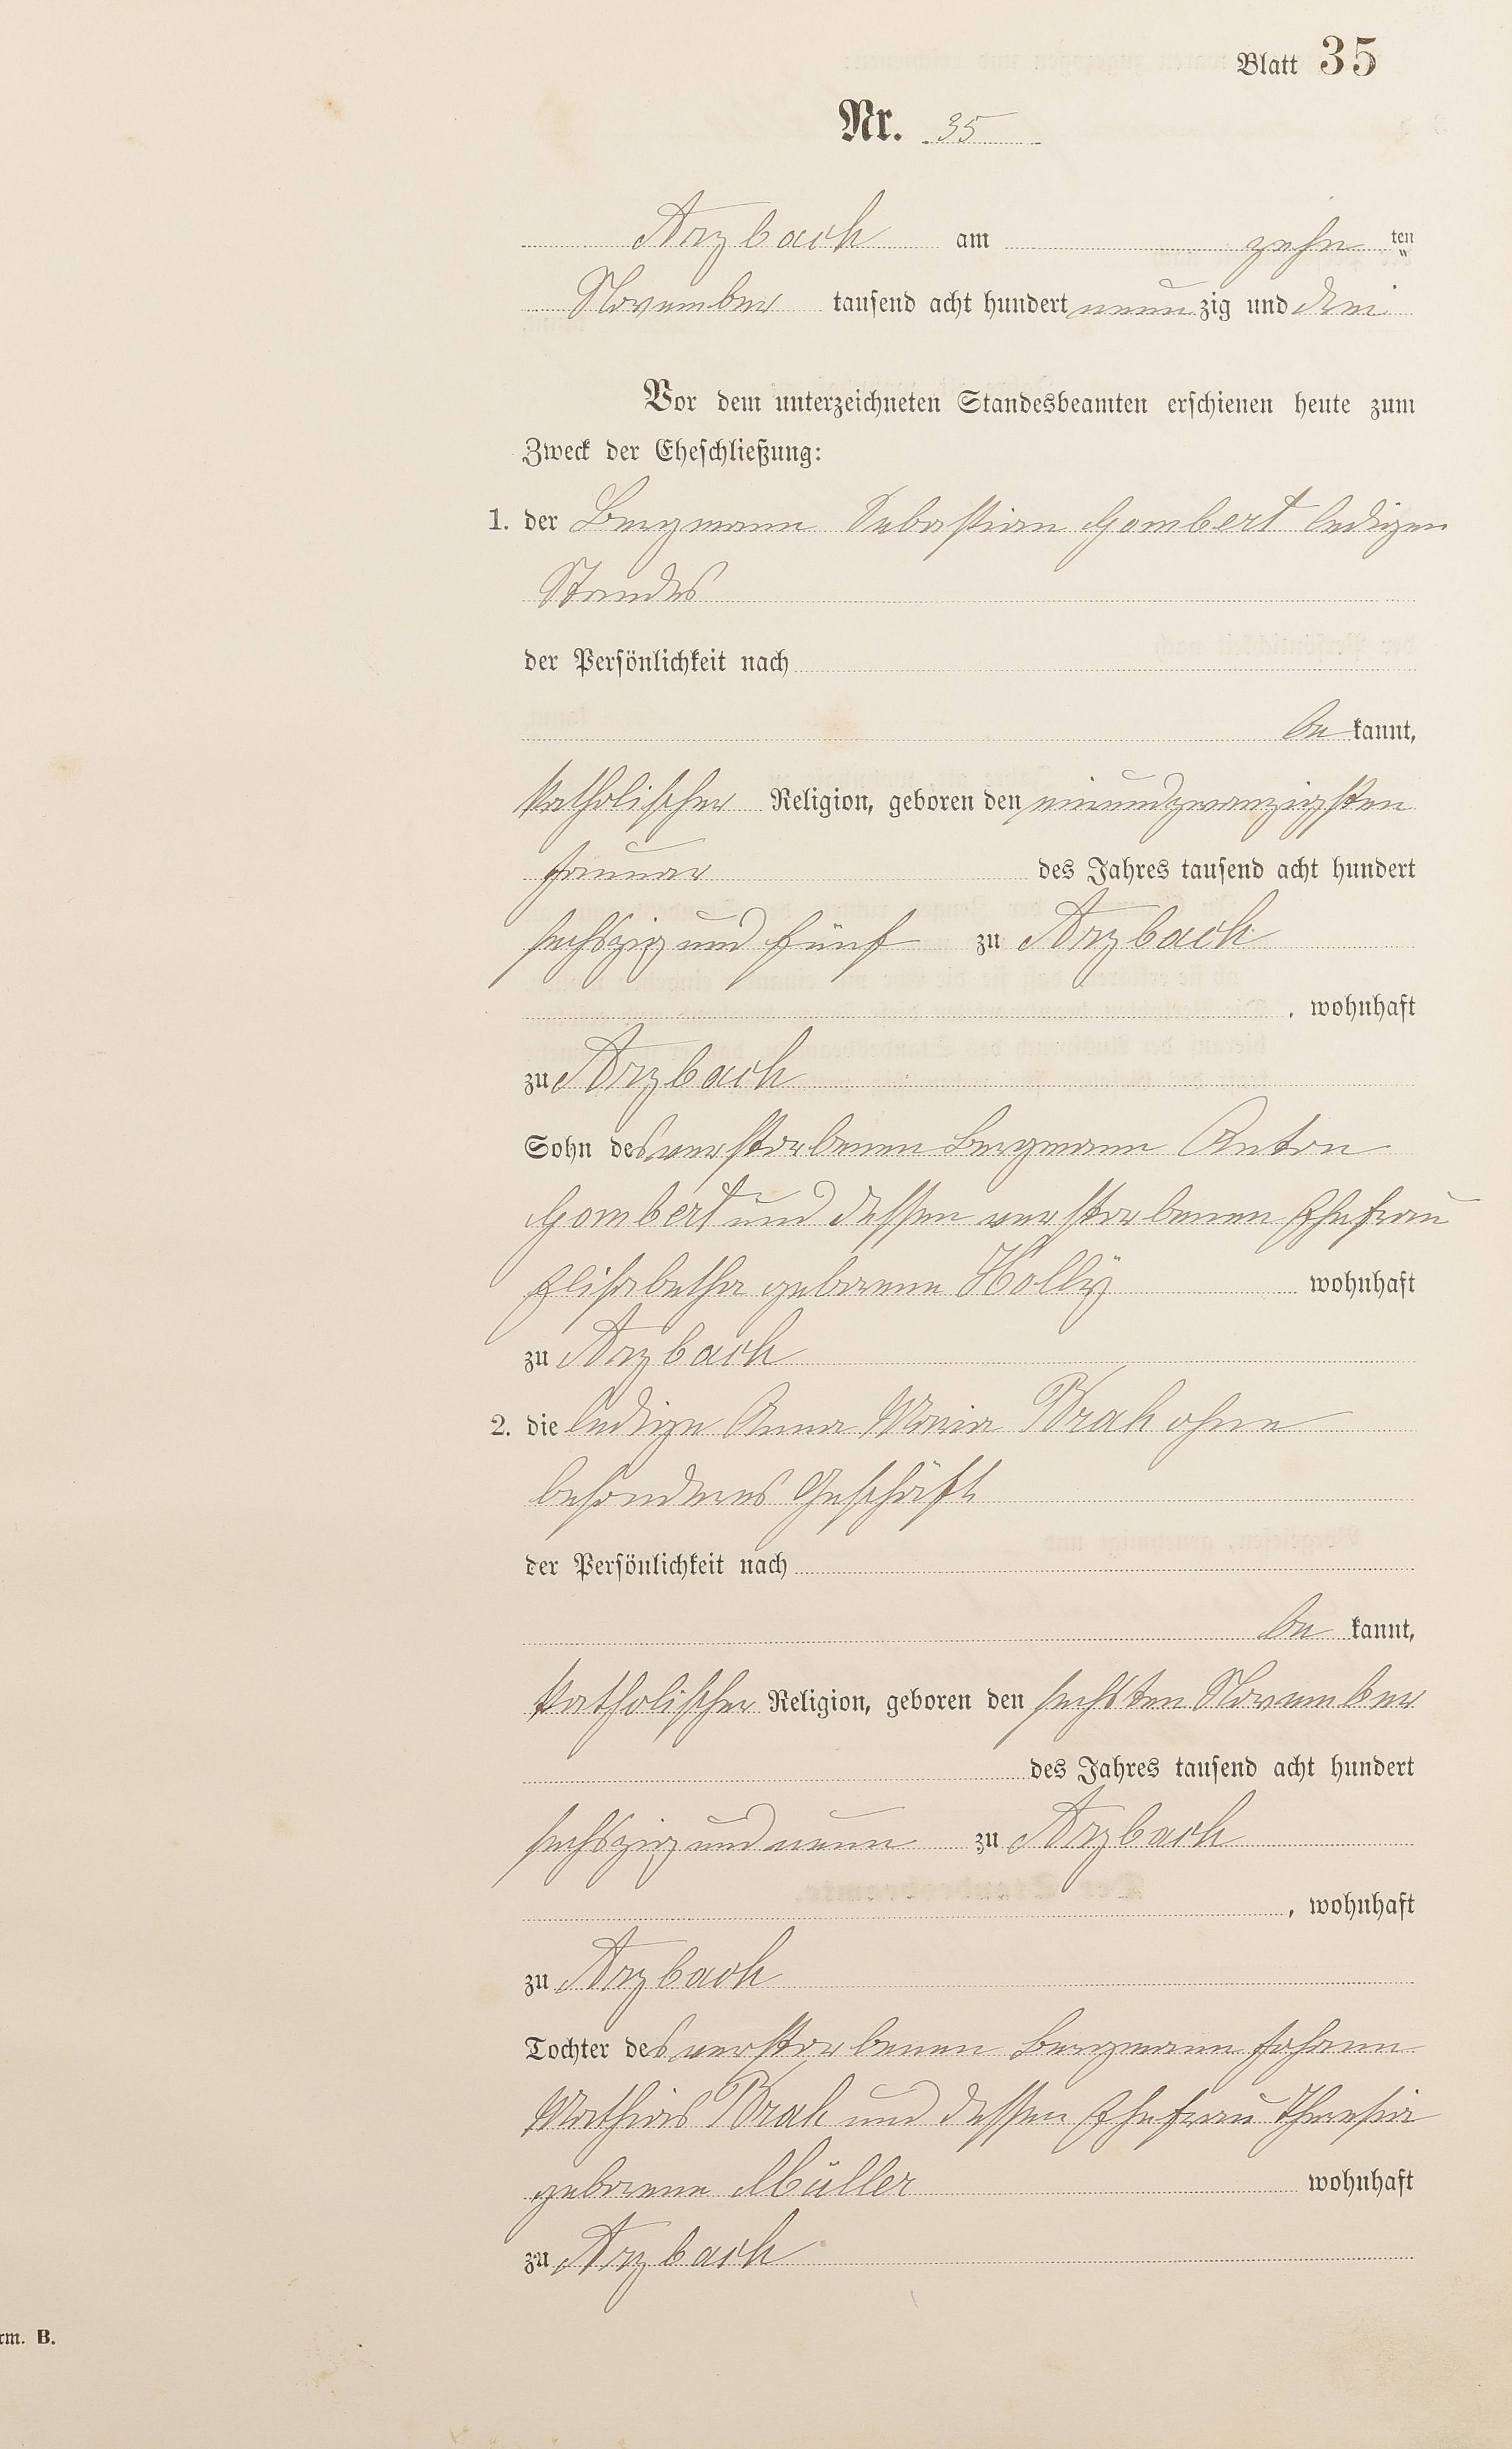 Blatt 35
Nr. 35
Arzbach am zehn ten
November tausend acht hundert neunzig und drei
Vor dem unterzeichneten Standesbeamten erschienen heute zum
Zweck der Eheschließung:
1. der Bergmann Sebastian Gombert ledigen
Standes
der Persönlichkeit nach
be kannt,
katholischer Religion, geboren den einundzwanzigsten
Januar des Jahres tausend acht hundert
sechszig und fünf zu Arzbach
, wohnhaft
zu Arzbach
Sohn des verstorbenen Bergmann Anton
Gombert und dessen verstorbenen Ehefrau
Elisabetha geborene Holly wohnhaft
zu Arzbach
2. die ledige Anna Maria Brah ohne
besonderes Geschäft
der Persönlichkeit nach
be kannt,
katholischer Religion, geboren den sechsten November
des Jahres tausend acht hundert
sechszig und neun zu Arzbach
, wohnhaft
zu Arzbach
Tochter des verstorbenen Bergmann Johann
Mathias Brah und dessen Ehefrau Theresia
geborene Müller wohnhaft
zu Arzbach
rm. B.